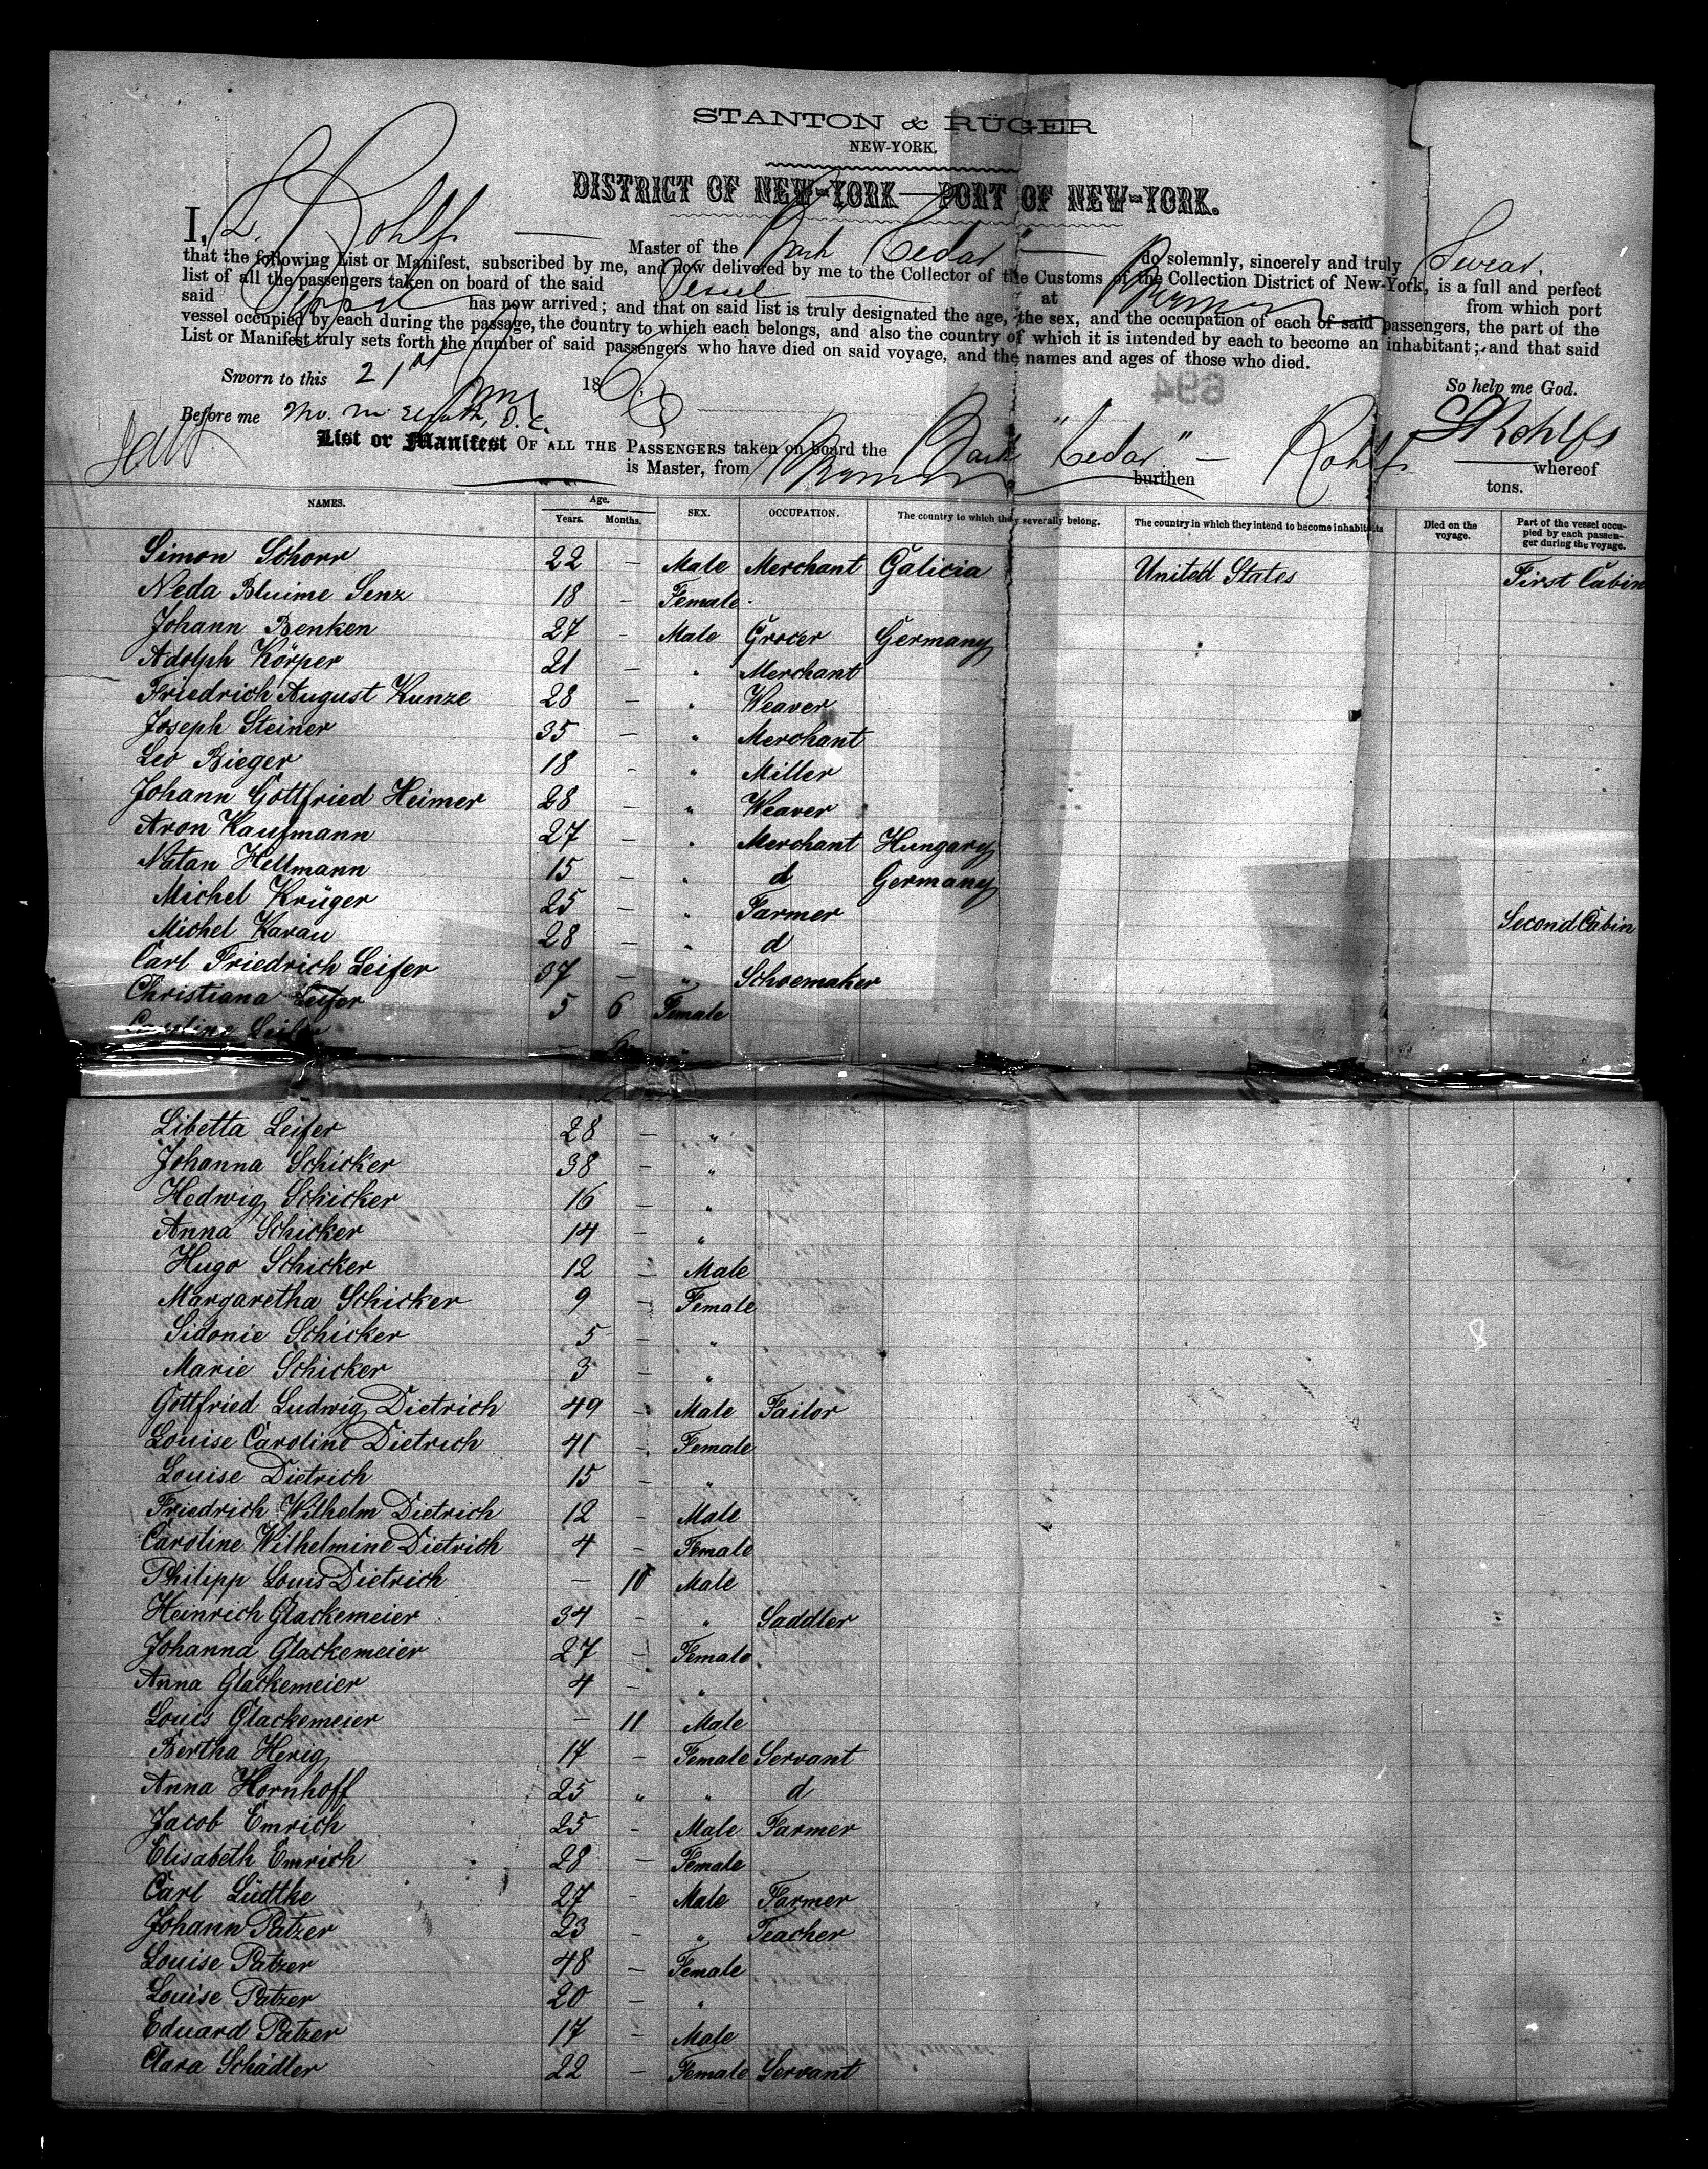 STANTON & RÜGER
NEW-YORK.
DISTRICT OF NEW-YORK—PORT OF NEW-YORK.
I, Rohlfs Master of the Bark Cedar do solemnly, sincerely and truly Swear,
that the following List or Manifest, subscribed by me, and now delivered by me to the Collector of the Customs of the Collection District of New-York, is a full and perfect
list of all the passengers taken on board of the said Vessel at Bremen from which port
said Vessel has now arrived; and that on said list is truly designated the age, the sex, and the occupation of each of said passengers, the part of the
vessel occupied by each during the passage, the country to which each belongs, and also the country of which it is intended by each to become an inhabitant; and that said
List or Manifest truly sets forth the number of said passengers who have died on said voyage, and the names and ages of those who died.
Sworn to this 21st 186 694 So help me God.
Before me D. C. Rohlfs
List or Manifest OF ALL THE PASSENGERS taken on board the Bark "Cedar" Rohlfs whereof
is Master, from Bremen burthen tons.
NAMES. Age. Years. Months. SEX. OCCUPATION. The country to which they severally belong. The country in which they intend to become inhabitants Died on the voyage. Part of the vessel occupied by each passenger during the voyage.
Simon Schorr 22 — Male Merchant Galicia United States First Cabin
Neda Bluime Senz 18 — Female
Johann Benken 27 — Male Grocer Germany
Adolph Körper 21 — " Merchant
Friedrich August Kunze 28 — " Weaver
Joseph Steiner 35 — " Merchant
Leo Bieger 18 — " Miller
Johann Gottfried Heimer 28 — " Weaver
Aron Kaufmann 27 — " Merchant Hungary
Natan Hellmann 15 — " d Germany
Michel Krüger 25 — " Farmer Second Cabin
Michel Karau 28 — " d
Carl Friedrich Leifer 37 — " Schoemaker
Christiana Leifer 5 6 Female
Caroline Leifer — 6 "
Libetta Leifer 28 — "
Johanna Schicker 38 — "
Hedwig Schicker 16 — "
Anna Schicker 14 — "
Hugo Schicker 12 — Male
Margaretha Schicker 9 — Female
Sidonie Schicker 5 — "
Marie Schicker 3 — "
Gottfried Ludwig Dietrich 49 — Male Tailor
Louise Caroline Dietrich 41 — Female
Louise Dietrich 15 — "
Friedrich Wilhelm Dietrich 12 — Male
Caroline Wilhelmine Dietrich 4 — Female
Philipp Louis Dietrich — 10 Male
Heinrich Glackemeier 34 — " Saddler
Johanna Glackemeier 27 — Female
Anna Glackemeier 4 — "
Louis Glackemeier — 11 Male
Bertha Herig 17 — Female Servant
Anna Hornhoff 25 " " d
Jacob Emrich 25 — Male Farmer
Elisabeth Emrich 28 — Female
Carl Lüdtke 27 — Male Farmer
Johann Patzer 23 — " Teacher
Louise Patzer 48 — Female
Louise Patzer 20 — "
Eduard Patzer 17 — Male
Clara Schädler 22 — Female Servant